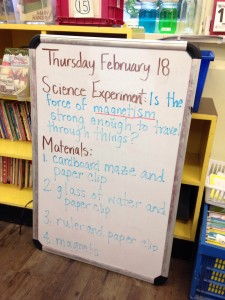 15
Thursday February 18
Science Experiment: Is the
force of magnetism
strong enough to travel
through things?
Materials:
1. cardboard maze and
paper clip
2. glass of water and
paper clip
3. ruler and paper clip
4. magnets